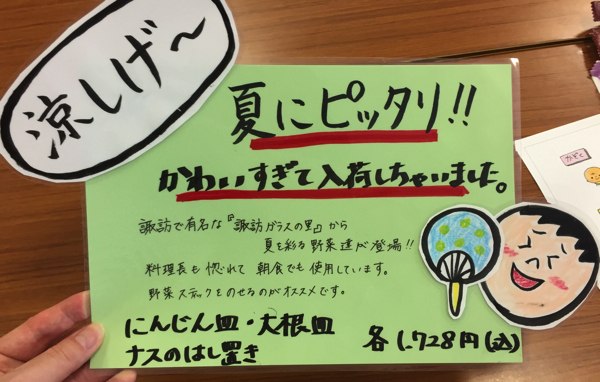 涼しげ〜
夏にピッタリ!!
かわいすぎて入荷しちゃいました。
諏訪で有名な『諏訪ガラスの里』から
夏を彩る野菜達が登場!!
料理長も惚れて朝食でも使用しています。
野菜スティックをのせるのがオススメです。
にんじん皿・大根皿
ナスのはし置き
各1,728円(込)
かぞく